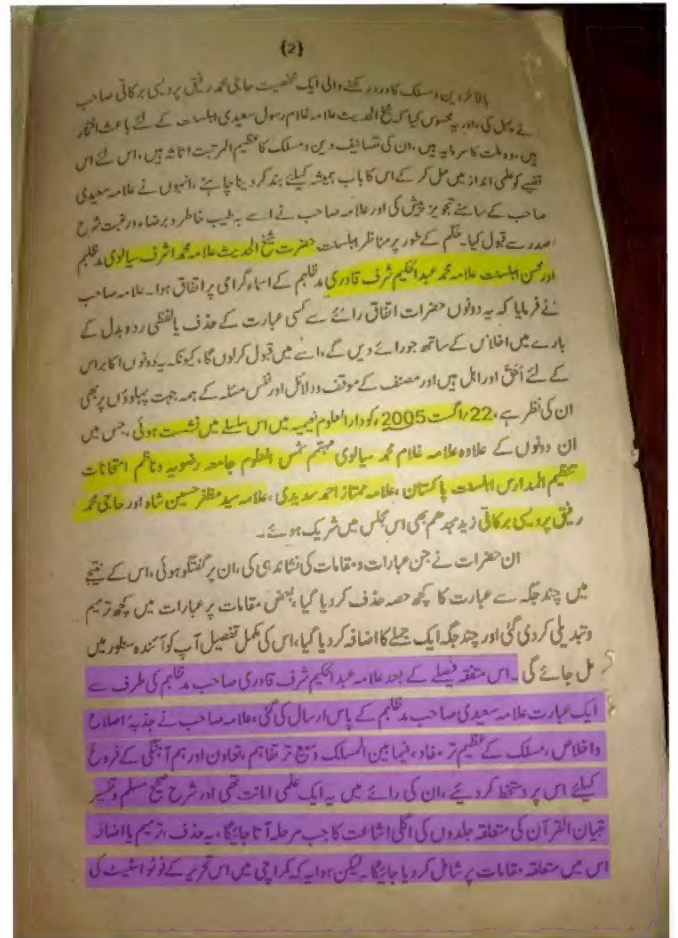 {2}
بالآخر دین و مسلک کا درد رکھنے والی ایک شخصیت حاجی محمد رفیق پردیسی برکاتی صاحب
نے پہل کی، اور یہ محسوس کیا کہ شیخ الحدیث علامہ غلام رسول سعیدی اہلسنت کے لئے باعث افتخار
ہیں، وہ ملت کا سرمایہ ہیں، ان کی تصانیف دین و مسلک کا عظیم المرتبت اثاثہ ہیں، اس لئے اس
قضیے کو علمی انداز میں حل کر کے اس کا باب ہمیشہ کیلئے بند کر دینا چاہئے، انہوں نے علامہ سعیدی
صاحب کے سامنے تجویز پیش کی اور علامہ صاحب نے اسے بہ طیب خاطر و برضاء ورغبت شرح
صدر سے قبول کیا۔ حَکَم کے طور پر مناظر اہلسنت حضرت شیخ الحدیث علامہ محمد اشرف سیالوی مدظلہم
اور محسن اہلسنت علامہ محمد عبدالحکیم شرف قادری مدظلہم کے اسماء گرامی پر اتفاق ہوا۔ علامہ صاحب
نے فرمایا کہ یہ دونوں حضرات اتفاق رائے سے کسی عبارت کے حذف یا لفظی ردوبدل کے
بارے میں اخلاص کے ساتھ جو رائے دیں گے، اسے میں قبول کرلوں گا، کیونکہ یہ دونوں اکابر اس
کے لئے اَحَق اور اہل ہیں اور مصنف کے موقف و دلائل اور نفس مسئلہ کے ہمہ جہت پہلوؤں پر بھی
ان کی نظر ہے، 22/اگست 2005، کو دارالعلوم نعیمیہ میں اس سلسلے میں نشست ہوئی، جس میں
ان دونوں کے علاوہ علامہ غلام محمد سیالوی مہتمم شمس العلوم جامعہ رضویہ و ناظم امتحانات
تنظیم المدارس اہلسنت پاکستان، علامہ ممتاز احمد سدیدی، علامہ سید مظفر حسین شاہ اور حاجی محمد
رفیق پردیسی برکاتی زید مجدھم بھی اس مجلس میں شریک ہوئے۔
ان حضرات نے جن عبارات و مقامات کی نشاندہی کی، ان پر گفتگو ہوئی، اس کے نتیجے
میں چند جگہ سے عبارت کا کچھ حصہ حذف کر دیا گیا، بعض مقامات پر عبارات میں کچھ ترمیم
و تبدیلی کر دی گئی اور چند جگہ ایک جملے کا اضافہ کر دیا گیا، اس کی مکمل تفصیل آپ کو آئندہ سطور میں
مل جائے گی۔ اس متفقہ فیصلے کے بعد علامہ عبدالحکیم شرف قادری صاحب مدظلہم کی طرف سے
ایک عبارت علامہ سعیدی صاحب مدظلہم کے پاس ارسال کی گئی، علامہ صاحب نے جذبۂ اصلاح
واخلاص، مسلک کے عظیم تر مفاد، فیما بین المسلک وسیع تر تفاہم، تعاون اور ہم آہنگی کے فروغ
کیلئے اس پر دستخط کر دیئے، ان کی رائے میں یہ ایک علمی امانت تھی اور شرح صحیح مسلم و تفسیر
تبیان القرآن کی متعلقہ جلدوں کی اگلی اشاعت کا جب مرحلہ آتا جائیگا، یہ حذف، ترمیم یا اضافہ
اس میں متعلقہ مقامات پر شامل کر دیا جائیگا۔ لیکن ہوا یہ کہ کراچی میں اس تحریر کے فوٹو اسٹیٹ کی